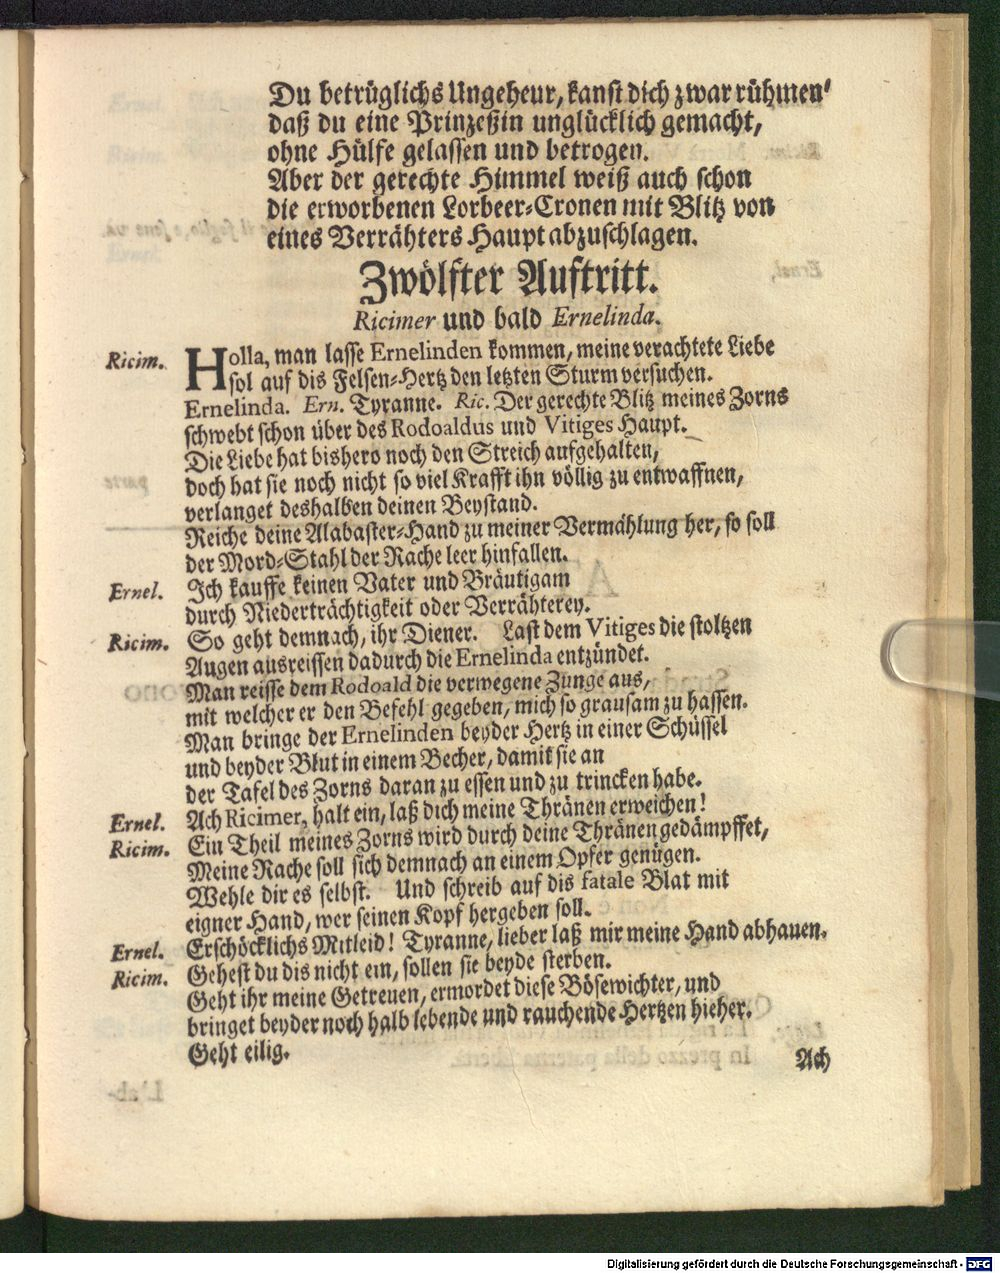 Du betrüglichs Ungeheur, kanst dich zwar rühmen'
daß du eine Prinzeßin unglücklich gemacht,
ohne Hülfe gelassen und betrogen.
Aber der gerechte Himmel weiß auch schon
die erworbenen Lorbeer-Cronen mit Blitz von
eines Verrähters Haupt abzuschlagen.
Zwölfter Auftritt.
Ricimer und bald Ernelinda.
Ricim. Holla, man lasse Ernelinden kommen, meine verachtete Liebe
sol auf dis Felsen-Hertz den letzten Sturm versuchen.
Ernelinda. Ern. Tyranne. Ric. Der gerechte Blitz meines Zorns
schwebt schon über des Rodoaldus und Vitiges Haupt.
Die Liebe hat bishero noch den Streich aufgehalten,
doch hat sie noch nicht so viel Krafft ihn völlig zu entwaffnen,
verlanget deshalben deinen Beystand.
Reiche deine Alabaster-Hand zu meiner Vermählung her, so soll
der Mord-Stahl der Rache leer hinfallen.
Ernel. Ich kauffe keinen Vater und Bräutigam
durch Niederträchtigkeit oder Verrähterey.
Ricim. So geht demnach, ihr Diener. Last dem Vitiges die stoltzen
Augen ausreissen dadurch die Ernelinda entzündet.
Man reisse dem Rodoald die verwegene Zunge aus,
mit welcher er den Befehl gegeben, mich so grausam zu hassen.
Man bringe der Ernelinden beyder Hertz in einer Schüssel
und beyder Blut in einem Becher, damit sie an
der Tafel des Zorns daran zu essen und zu trincken habe.
Ernel. Ach Ricimer, halt ein, laß dich meine Thränen erweichen!
Ricim. Ein Theil meines Zorns wird durch deine Thränen gedämpffet,
Meine Rache soll sich demnach an einem Opfer genügen.
Wehle dir es selbst. Und schreib auf dis fatale Blat mit
eigner Hand, wer seinen Kopf hergeben soll.
Ernel. Erschöcklichs Mitleid! Tyranne, lieber laß mir meine Hand abhauen.
Ricim. Gehest du dis nicht ein, sollen sie beyde sterben.
Geht ihr meine Getreuen, ermordet diese Bösewichter, und
bringet beyder noch halb lebende und rauchende Hertzen hieher.
Geht eilig.
Ach
Digitalisierung gefördert durch die Deutsche Forschungsgemeinschaft - DFG